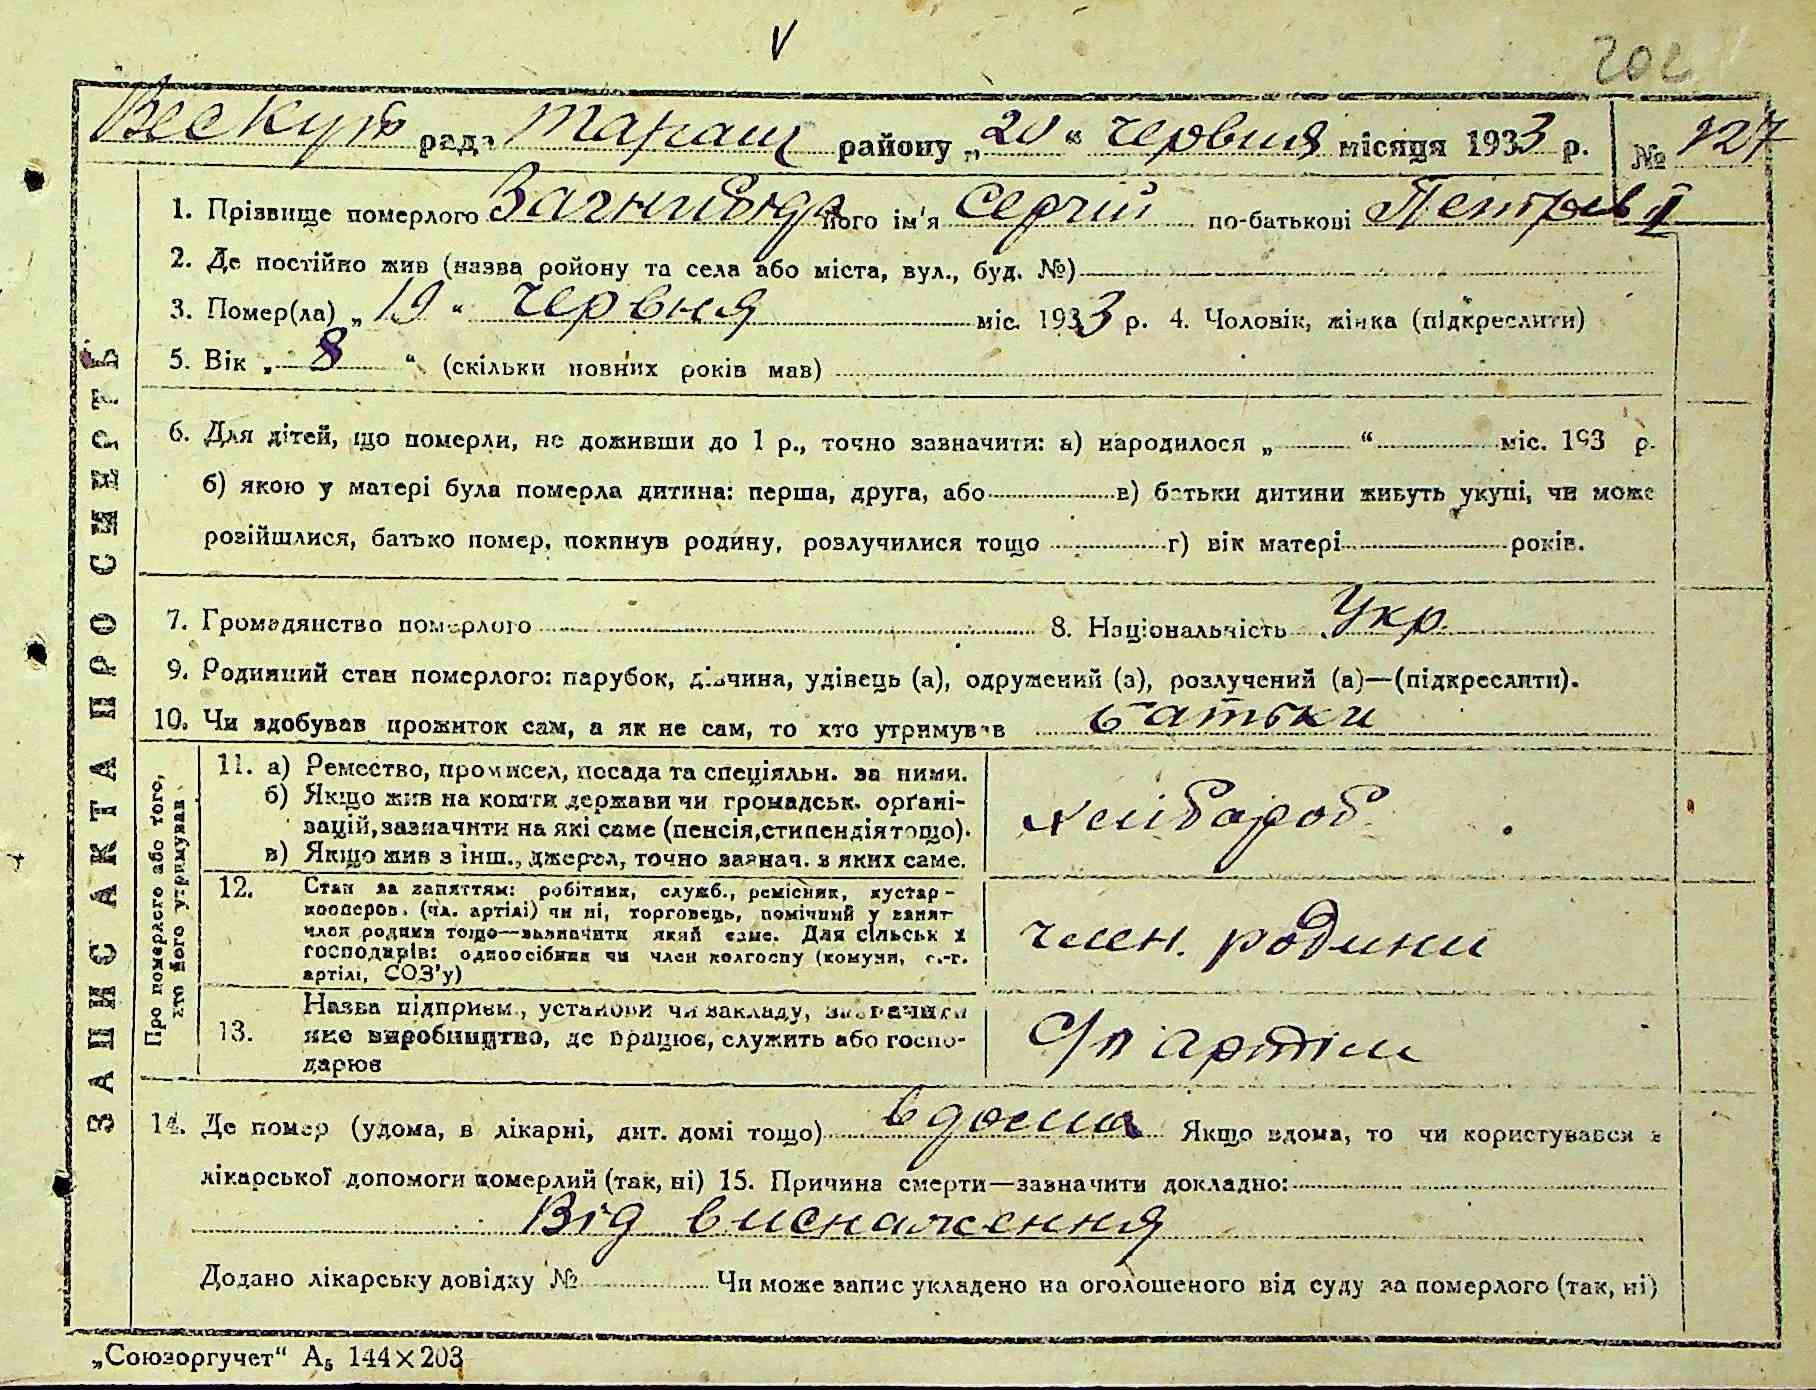 V
202
рада Таращ району „20“ червня місяця 1933 р. № 127
1. Прізвище померлого Загнибіда його ім'я Сергій по-батькові Петров
2. Де постійно жив (назва ройону та села або міста, вул., буд. №)
3. Помер(ла) „19“ червня міс. 1933 р. 4. Чоловік, жінка (підкреслити)
5. Вік „ 8 “ (скільки повних років мав)
6. Для дітей, що померли, не доживши до 1 р., точно зазначити: а) народилося „ “ міс. 193 р.
б) якою у матері була померла дитина: перша, друга, або в) батьки дитини живуть укупі, чи може
розійшлися, батько помер, покинув родину, розлучилися тощо г) вік матері років.
7. Громадянство померлого 8. Національність Укр
9. Родинний стан померлого: парубок, дівчина, удівець (а), одружений (а), розлучений (а)—(підкреслити).
10. Чи здобував прожиток сам, а як не сам, то хто утримував батьки
ЗАПИС АКТА ПРО СМЕРТЬ
Про померлого або того, хто його утримував
11. а) Ремество, промисел, посада та спеціяльн. за ними.
б) Якщо жив на кошти держави чи громадськ. орґані-
зацій, зазначити на які саме (пенсія, стипендія тощо).
в) Якщо жив з інш., джерел, точно зазнач. з яких саме.
хлібороб
12. Стан за заняттям: робітник, служб., ремісник, кустар-
кооперов. (чл. артілі) чи ні, торговець, помічний у занят
член родини тощо—зазначити який саме. Для сільськ х
господарів: одноосібник чи член колгоспу (комуни, с.-г.
артілі, СОЗ'у)
член. родини
13. Назва підприєм., установи чи закладу, зазначити
яке виробництво, де працює, служить або госпо-
дарює
С/г артіли
14. Де помер (удома, в лікарні, дит. домі тощо) вдома Якщо вдома, то чи користувався з
лікарської допомоги померлий (так, ні) 15. Причина смерти—зазначити докладно:
Від виснаження
Додано лікарську довідку № Чи може запис укладено на оголошеного від суду за померлого (так, ні)
„Союзоргучет“ А₅ 144×203